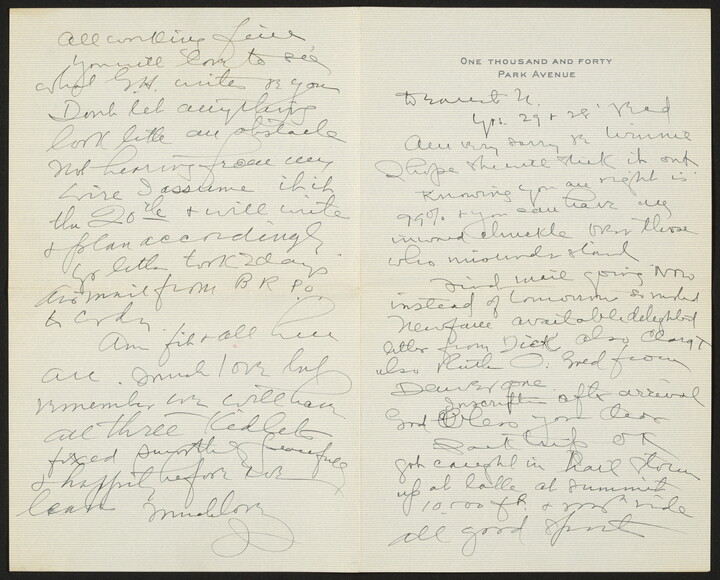 ONE THOUSAND AND FORTY
PARK AVENUE
Dearest N.
Yrs. 29 + 28 read
Am very sorry re Winnie
I hope she will stick it out
Knowing you are right is
99% + you can have an
inward chuckle over those
who misunderstand
Find mail going now
instead of tomorrow so
New available delighted
letter from Dick also
also Ruth O. Good from
Denver one.
Inscription after arrival
God Bless you Dear
trip OK
got caught in hail storm
up at lake at summit
10,000 ft. + ride
all good sport
All working fine
You will love to see
what G.H. writes re you
Don't let anything
look like an obstacle
Not hearing from my
wire I assume it is
the 20th + will write
+ plan accordingly
Yr letter took 2 days
Airmail from B R P.O.
to Cody
Am fit + all here
are. Much love but
remember we will have
all three Kidlets
fixed smoothly peacefully
+ happily before we
leave Much love